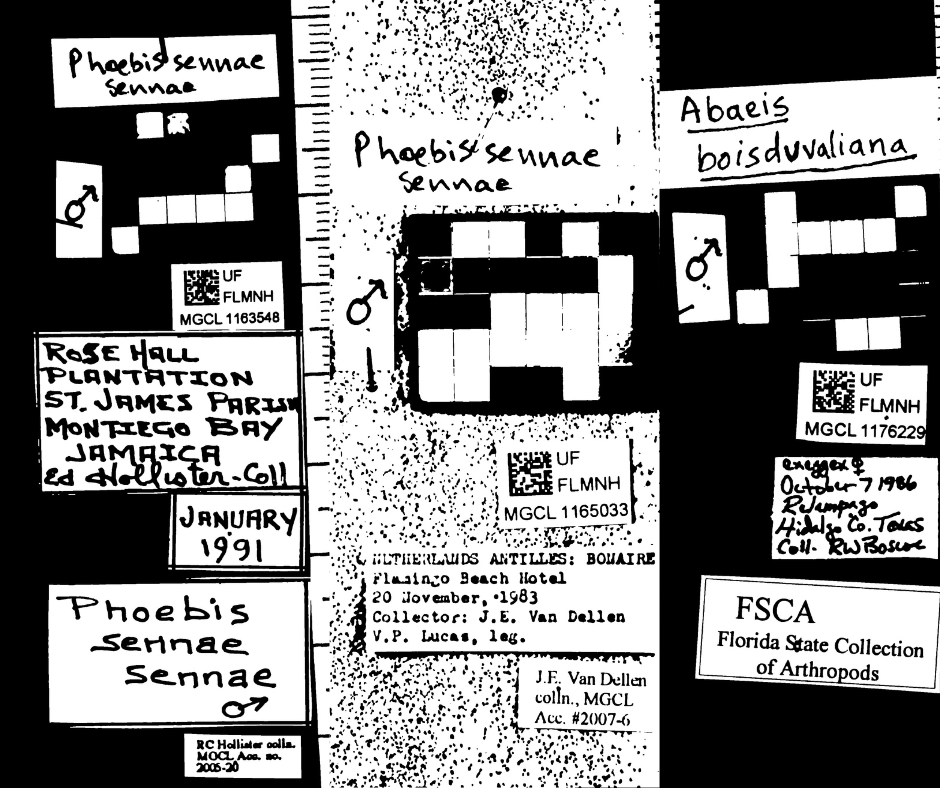 Phoebis sennae
sennae
♂
UF
FLMNH
MGCL 1163548
ROSE HALL
PLANTATION
ST. JAMES PARISH
MONTIEGO BAY
JAMAICA
Ed Hollister-Coll
JANUARY
1991
Phoebis
sennae
sennae
♂
RC Hollister colln.
MGCL Acc. no.
2005-20
Phoebis sennae
sennae
♂
UF
FLMNH
MGCL 1165033
NETHERLANDS ANTILLES: BONAIRE
Flamingo Beach Hotel
20 November, 1983
Collector: J.E. Van Dellen
V.P. Lucas, leg.
J.E. Van Dellen
colln., MGCL
Acc. #2007-6
Abaeis
boisduvaliana
♂
UF
FLMNH
MGCL 1176229
♀
October 7 1986
Relampago
Hidalgo Co. Texas
Coll. RW Boscoe
FSCA
Florida State Collection
of Arthropods